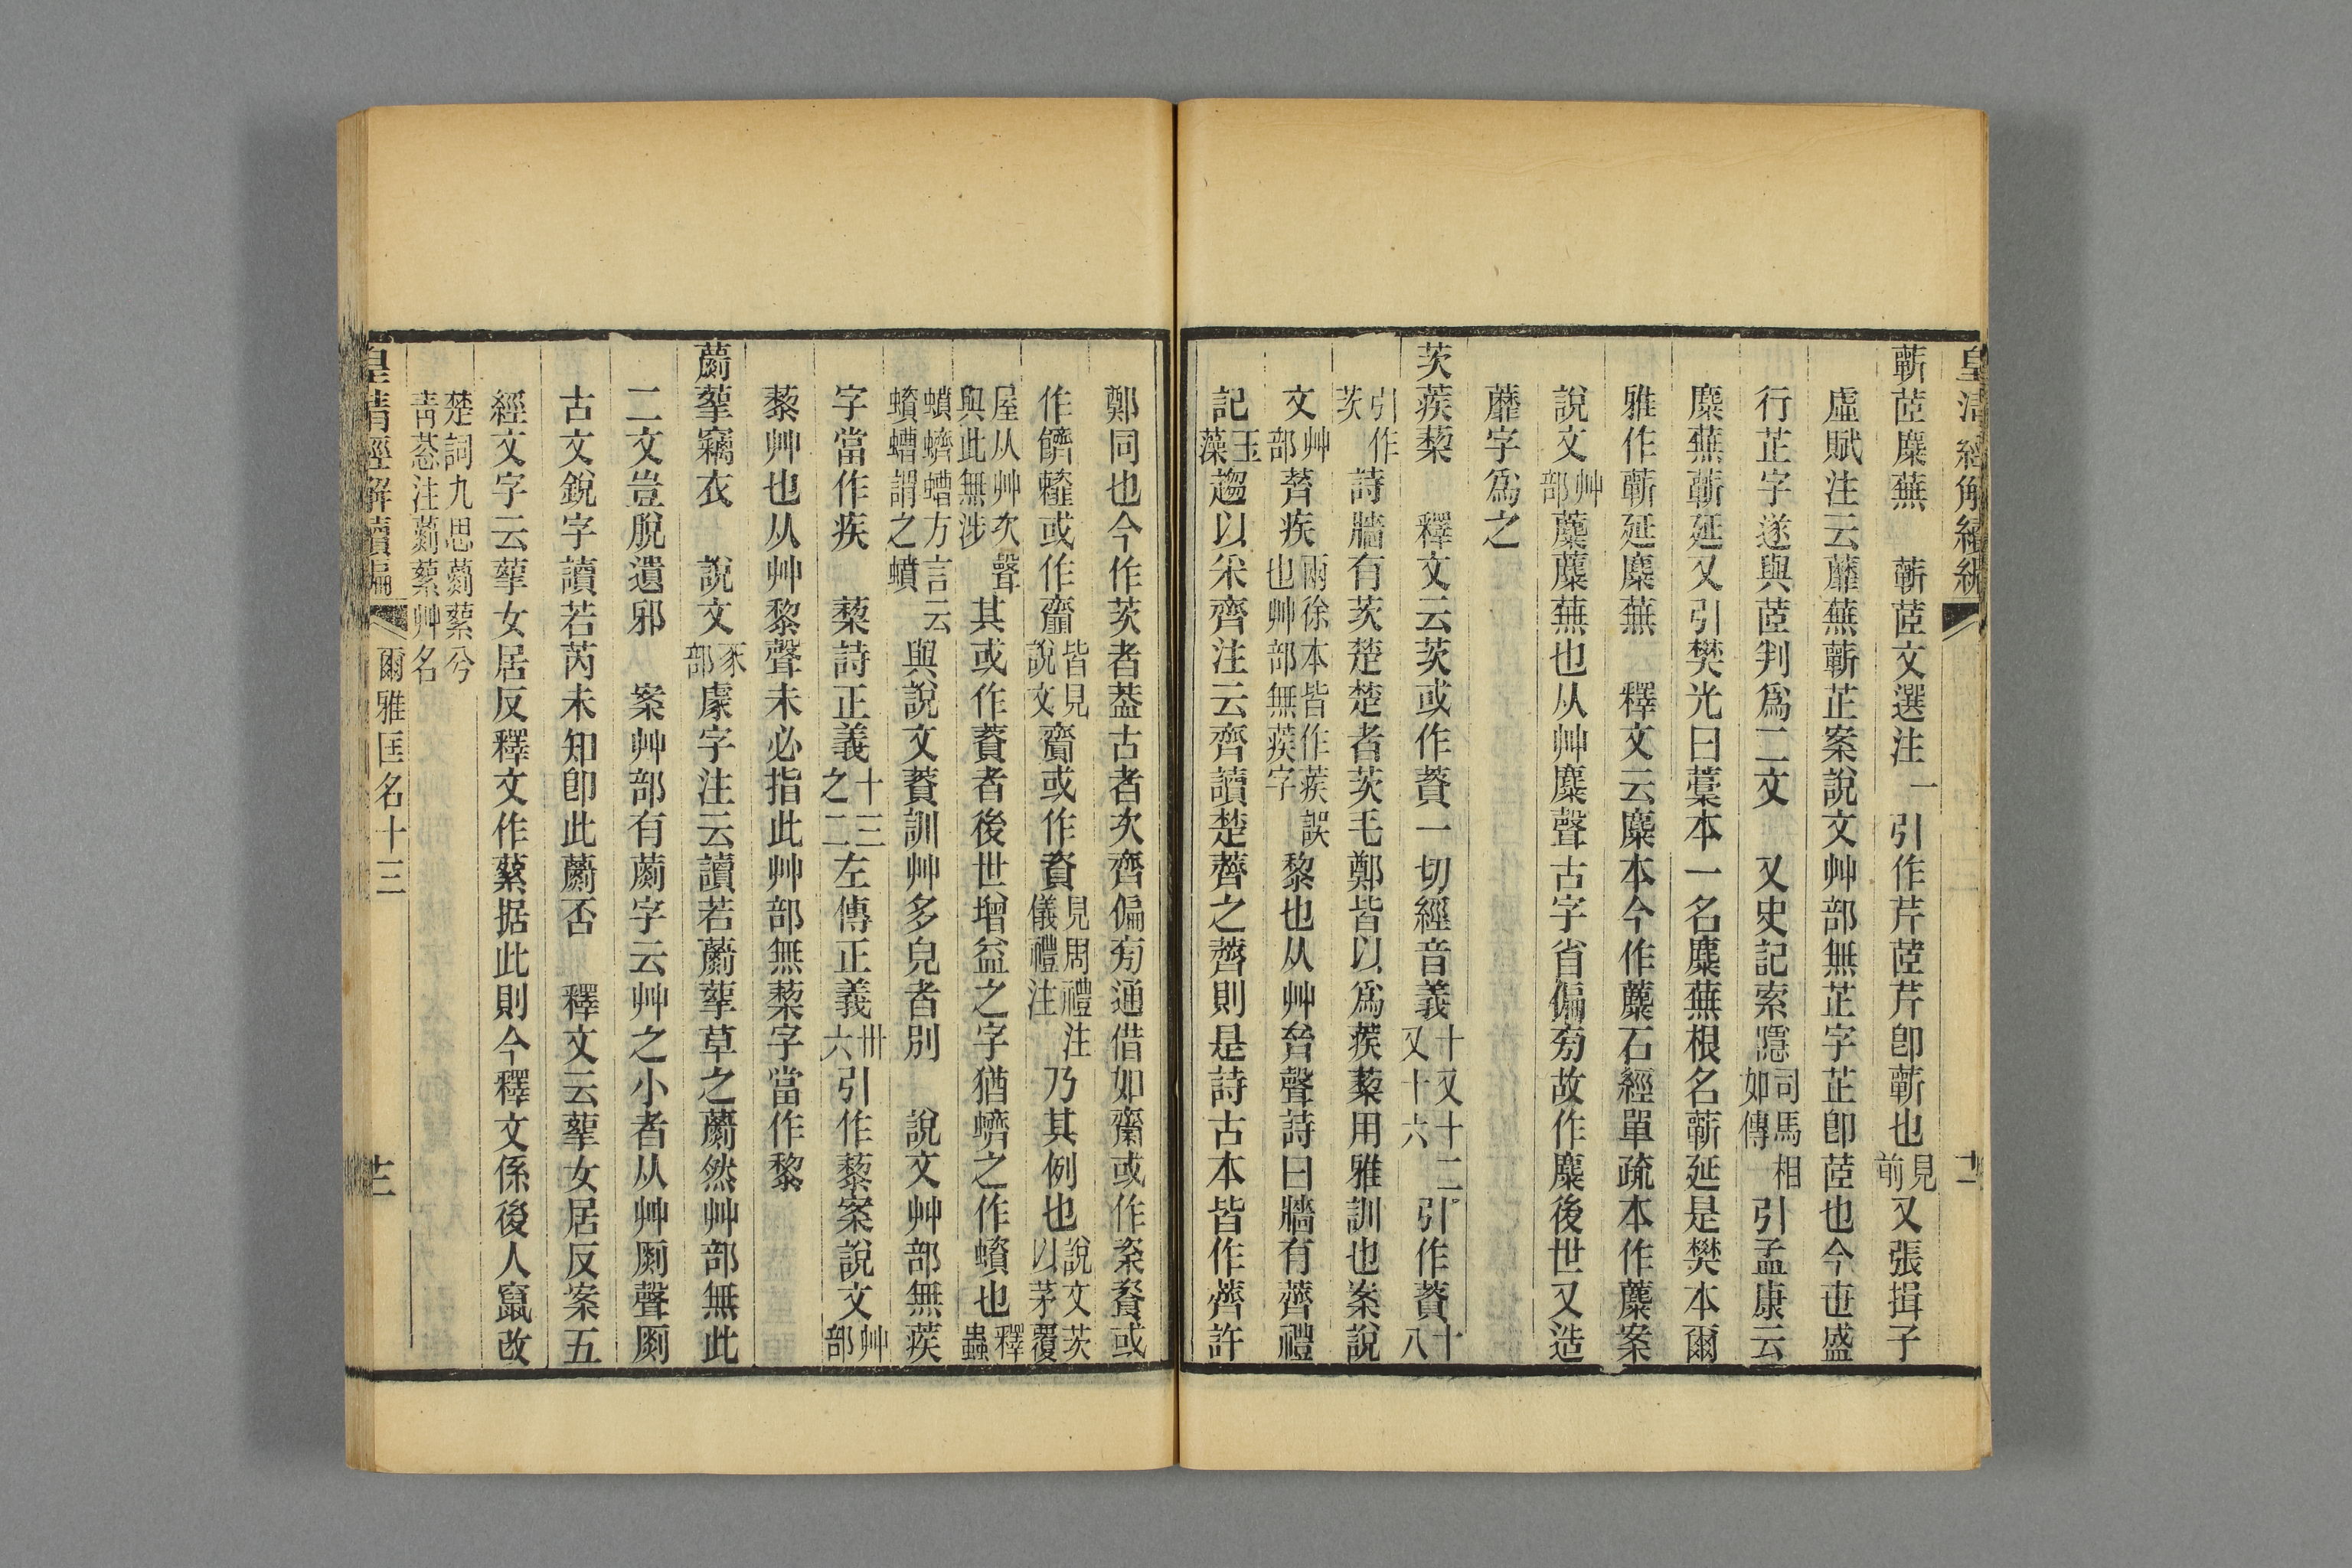 皇清經解續編
蘄茝麋蕪　蘄茝文選注一引作芹茝芹卽蘄也見前又張揖子
虛賦注云蘼蕪蘄芷案說文艸部無芷字芷卽茝也今世盛
行芷字遂與茝判爲二文　又史記索隱司馬相如傳引孟康云
麋蕪蘄延又引樊光曰藁本一名麋蕪根名蘄延是樊本爾
雅作蘄延麋蕪　釋文云麋本今作蘪石經單疏本作蘪案
說文艸部蘪蘪蕪也从艸麋聲古字省偏旁故作麋後世又造
蘼字爲之
茨蒺藜　釋文云茨或作薋一切經音義十又十二又十六引作薋十八
引作茨詩牆有茨楚楚者茨毛鄭皆以爲蒺藜用雅訓也案說
文艸部薺疾兩徐本皆作蒺誤也艸部無蒺字黎也从艸𠫼聲詩曰牆有薺禮
記玉藻趨以采齊注云齊讀楚薺之薺則是詩古本皆作薺許
鄭同也今作茨者葢古者次齊偏旁通借如齋或作粢餈或
作䭣𪗋或作齍皆見說文齎或作資見周禮注儀禮注乃其例也說文茨以茅覆
屋从艸次聲與此無涉其或作薋者後世增益之字猶蠐之作蠀也釋蟲
蟦蠐螬方言云蠀螬謂之蟦與說文薋訓艸多皃者別　說文艸部無蒺
字當作疾　藜詩正義十三之二左傳正義卌六引作藜案說文艸部
藜艸也从艸黎聲未必指此艸部無蔾字當作黎
蘮蒘竊衣　說文豕部豦字注云讀若蘮蒘草之蘮然艸部無此
二文豈脫遺邪　案艸部有蘮字云艸之小者从艸𠞊聲𠞊
古文銳字讀若芮未知卽此蘮否　釋文云蒘女居反案五
經文字云蒘女居反釋文作蕠据此則今釋文係後人竄改
楚詞九思蘮蕠兮青蔥注蘮蕠艸名
皇清經解續編　爾雅匡名十三